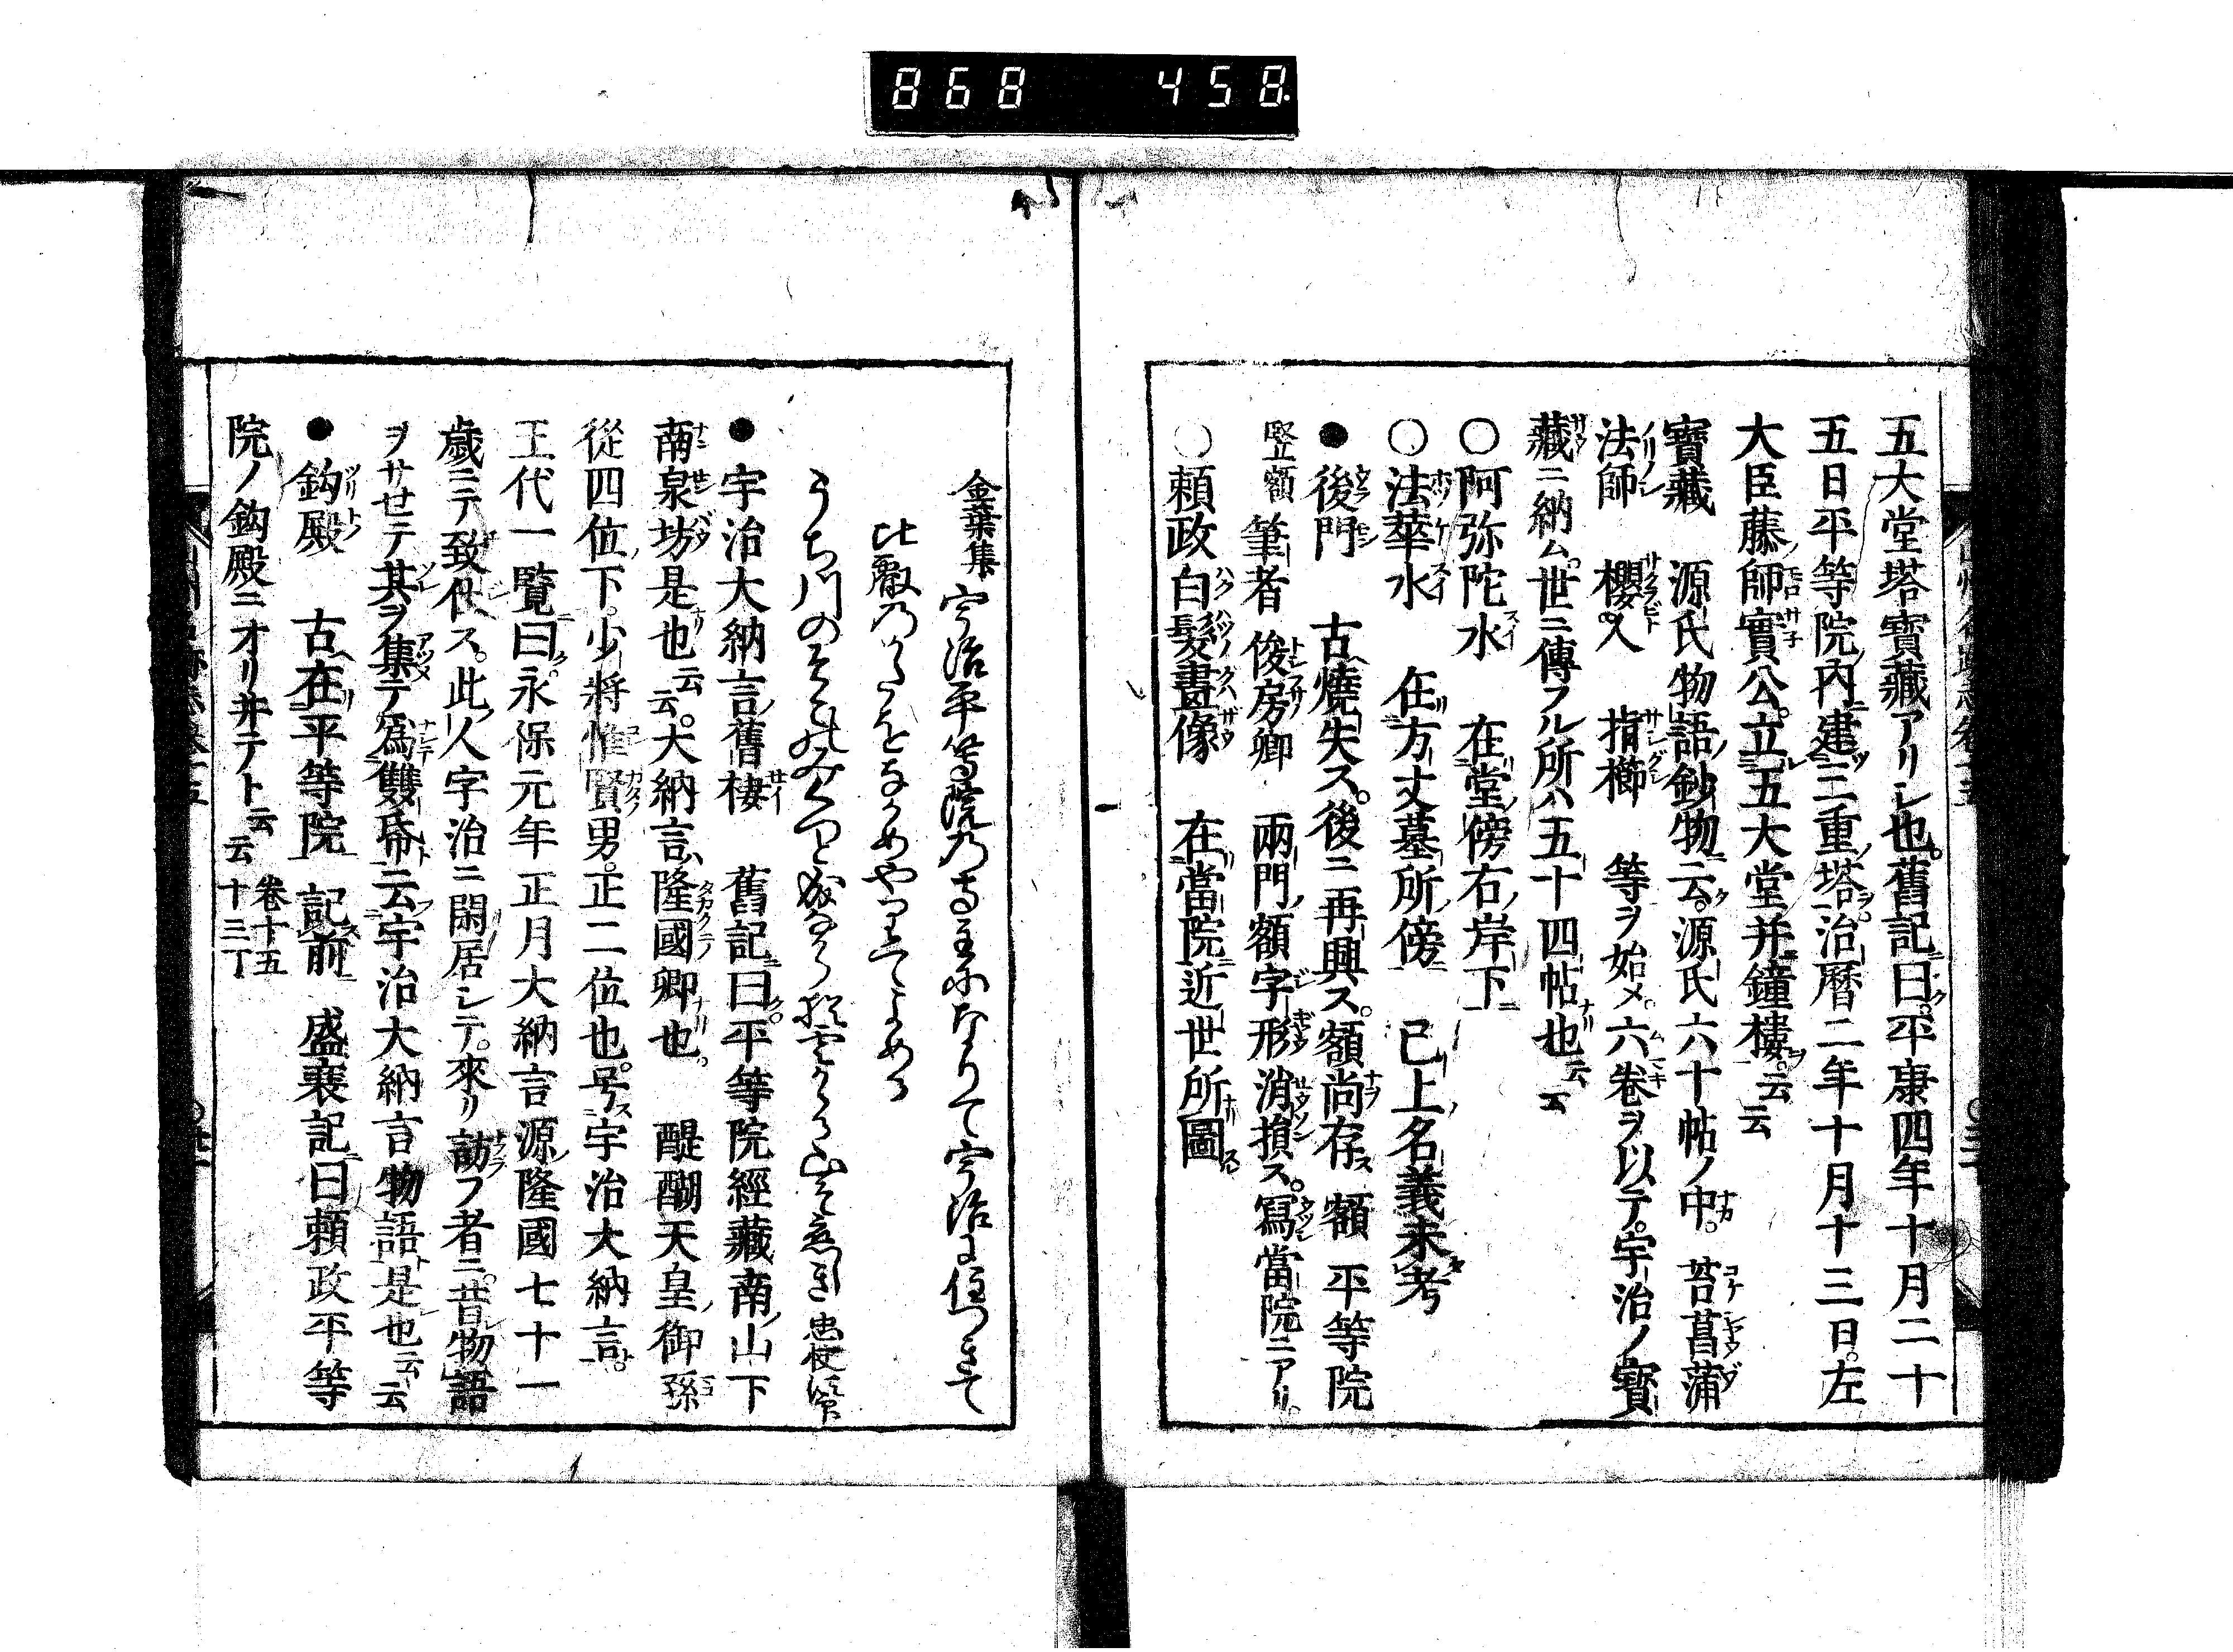 868 458
五大堂塔寳藏アリシ也。舊記曰。平康四年十月二十
五日平等院内建三重塔。治暦二年十月十三日。左
大臣藤師實公。立五大堂并鐘樓。云云
寳藏 源氏物語鈔物云。源氏六十帖ノ中。苔菖蒲
法師 櫻人 指櫛 等ヲ始メ。六卷ヲ以テ。宇治ノ寳
藏ニ納ム。世ニ傳フル所ハ五十四帖也云云
○阿弥陀水 在堂傍右岸下
○法華水 在方丈墓所傍 已上名義未考
●後門 古燒失ス。後ニ再興ス。額尚存ス 額 平等院
竪額 筆者 俊房卿 兩門額字形消損ス。寫當院ニアリ。
○頼政白髮畫像 在當院近世所圖
金葉集 宇治平等院乃寺主になりて宇治に住つきて
比叡乃かたをなかめやりてよめる
うち川のそこのみくつと なから猶雲かゝる山そ恋しき 忠快法師
●宇治大納言舊棲 舊記曰。平等院經藏南山下
南泉坊是也云云。大納言隆國卿也。 醍醐天皇御孫
從四位下。少將惟賢男。正二位也。号宇治大納言。
王代一覽曰。永保元年正月大納言源隆國七十一
歳ニテ致仕ス。此人宇治ニ閑居シテ。來リ訪フ者ニ。昔物語
ヲサセテ其ヲ集テ爲雙帋云宇治大納言物語是也云云
●鈎殿 古在平等院 記前 盛衰記曰頼政平等
院ノ鈎殿ニオリ井テト云云 卷十五 十三丁